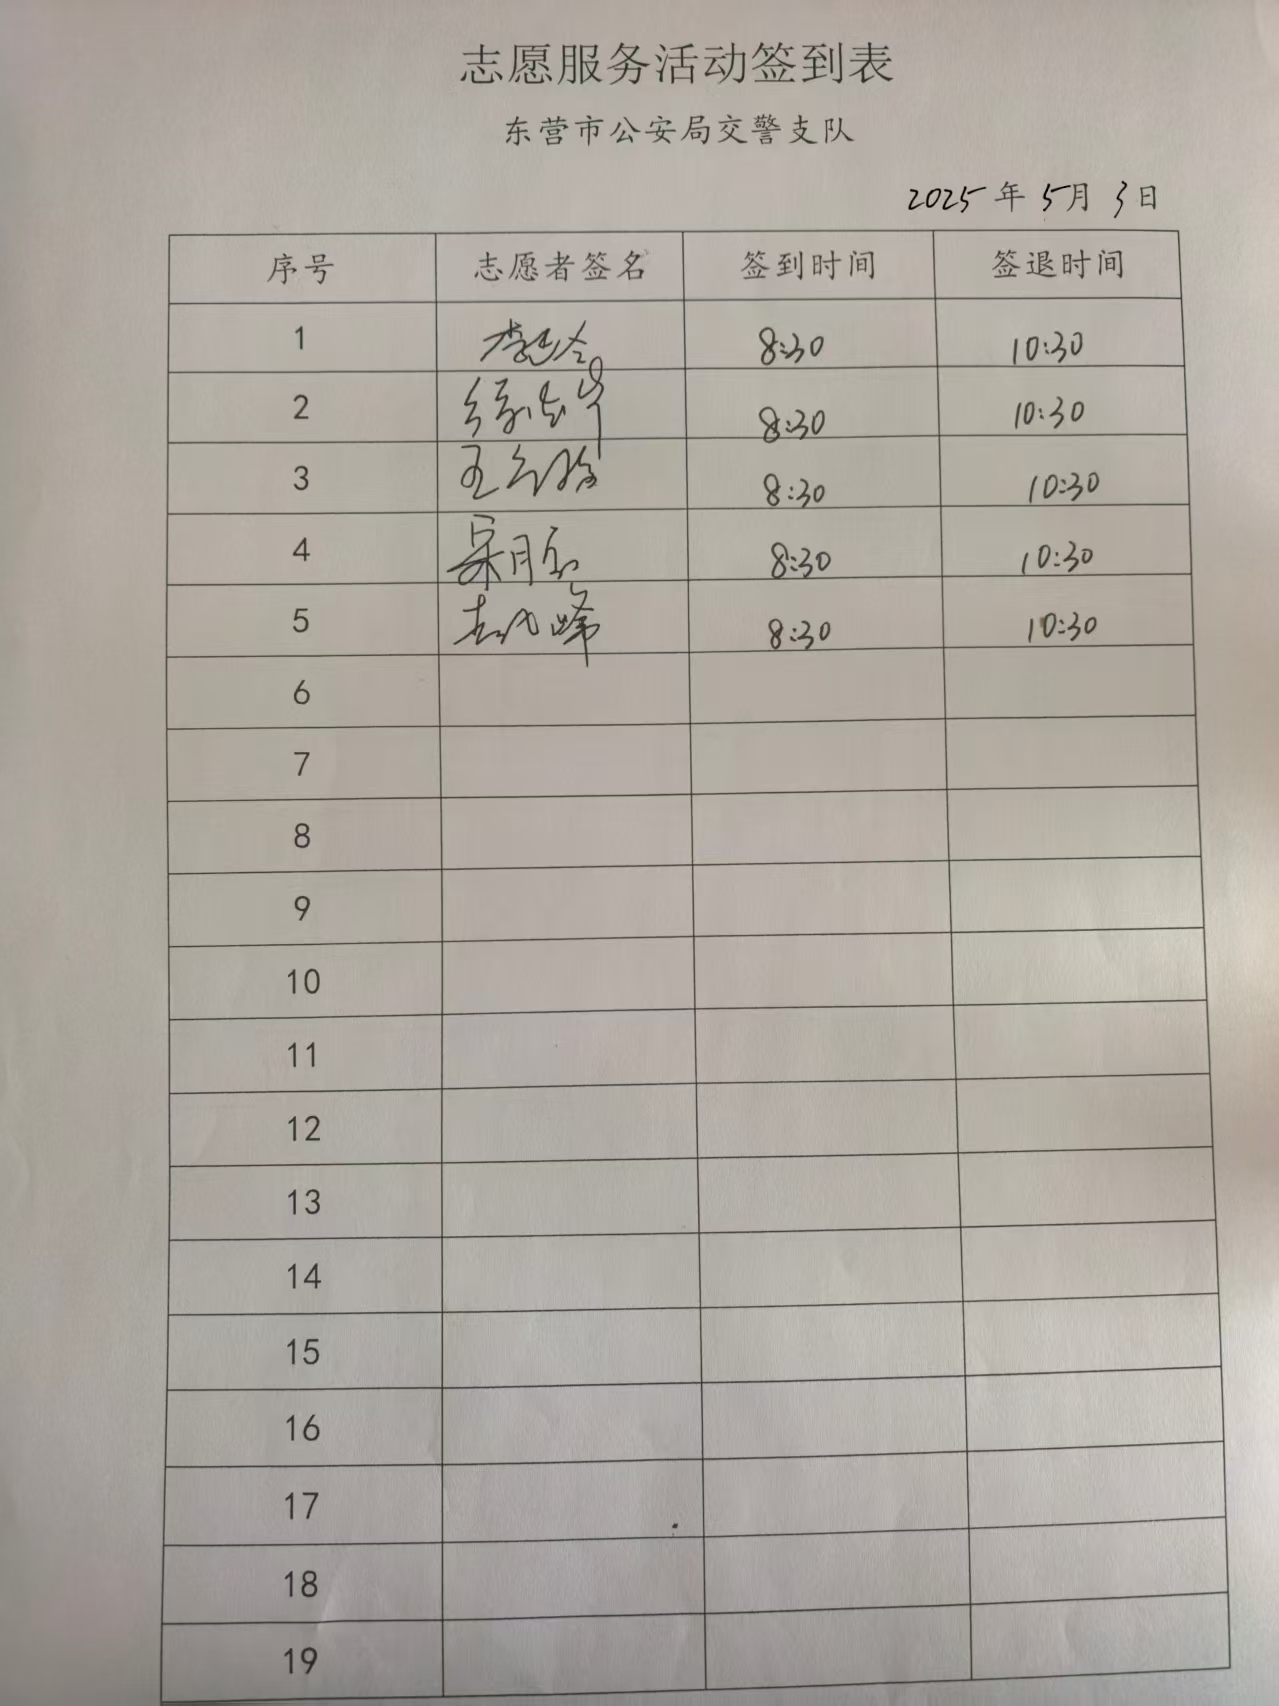 志愿服务活动签到表
东营市公安局交警支队
2025年5月3日
序号 志愿者签名 签到时间 签退时间
1 8:30 10:30
2 8:30 10:30
3 王 8:30 10:30
4 8:30 10:30
5 8:30 10:30
6
7
8
9
10
11
12
13
14
15
16
17
18
19